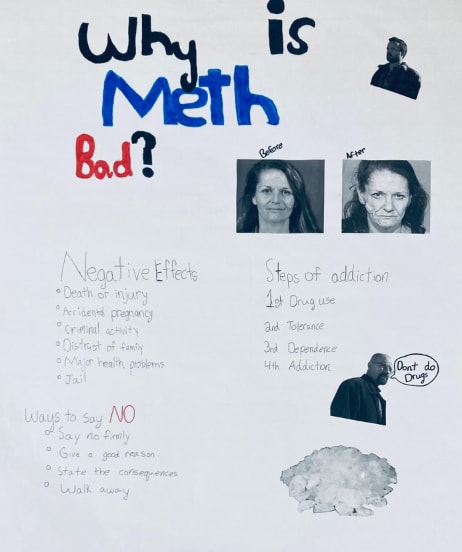 Why is
Meth
Bad?
Before
After
Negative Effects
Death or injury
Accidental pregnancy
Criminal activity
Distrust of family
Major health problems
Jail
Steps of addiction
1st Drug use
2nd Tolerance
3rd Dependence
4th Addiction
Dont do
Drugs
Ways to say NO
Say no firmly
Give a good reason
State the consequences
Walk away